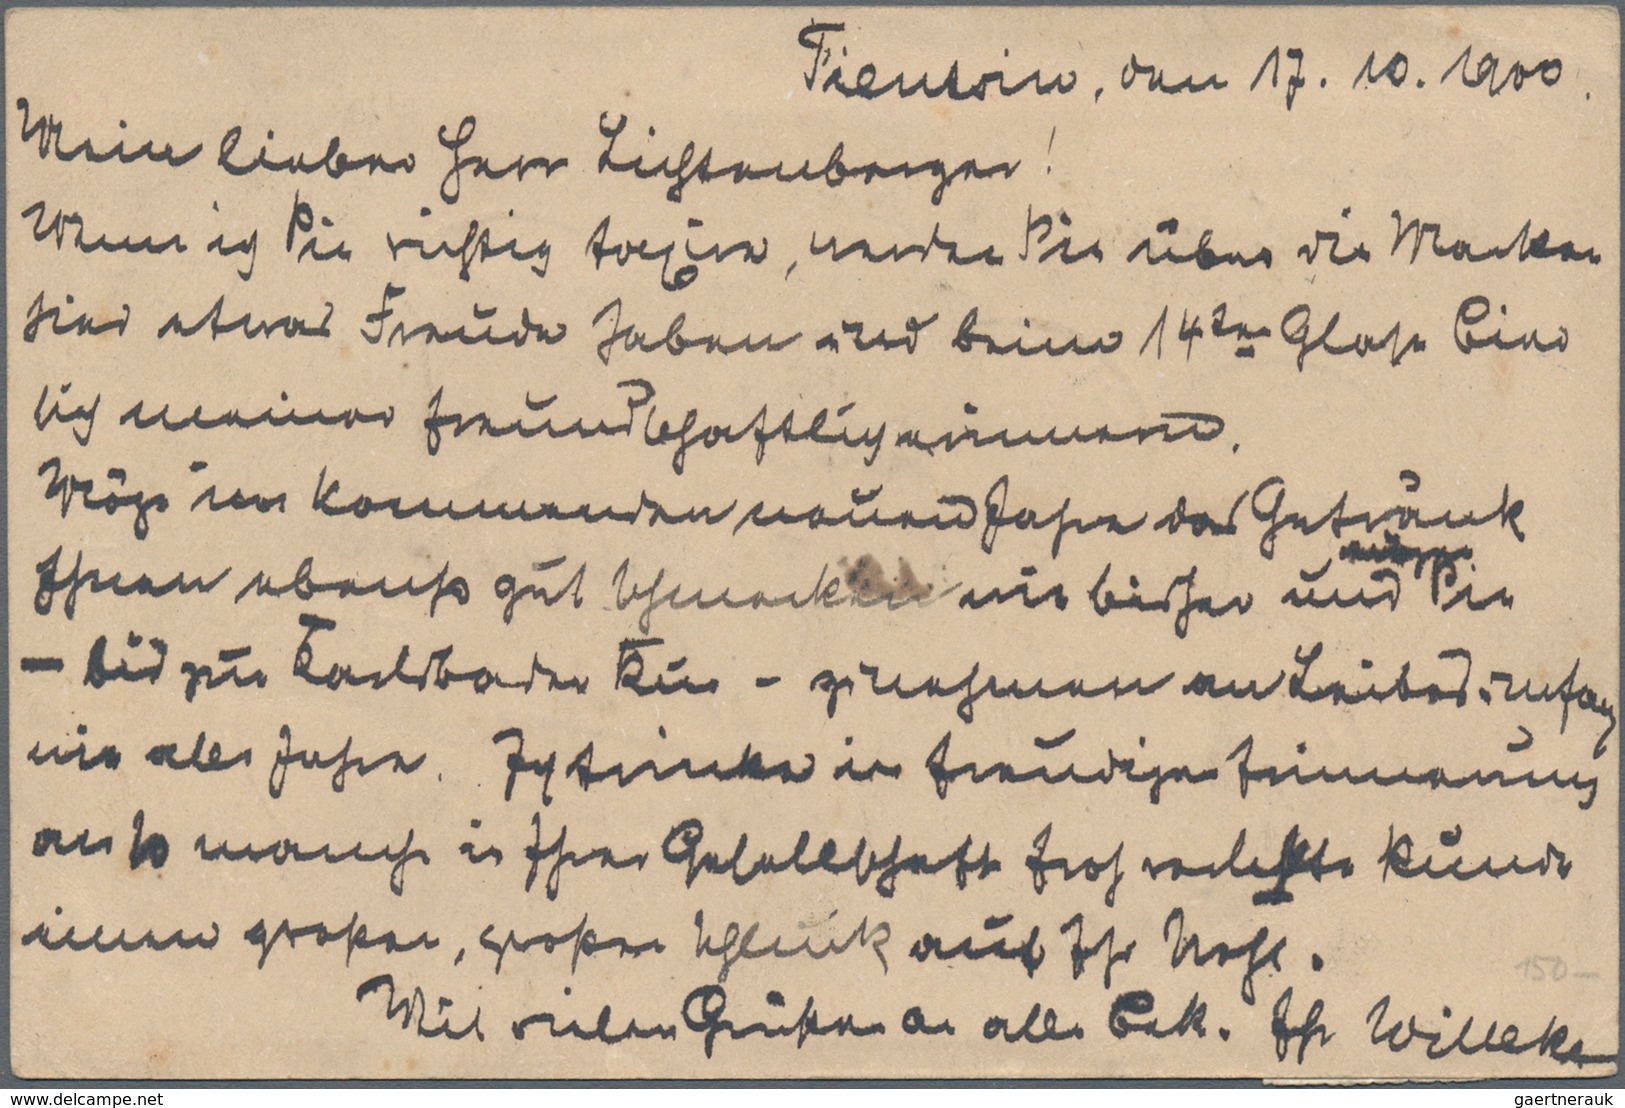 Tientsin, den 17. 10. 1900.
Mein lieber Herr Lichtenberger!
Wenn ich Sie richtig taxire, werden Sie über die Marken
hier etwas Freude haben und beim 14ten Glase Bier
sich meiner freundschaftlich erinnern.
Möge im kommenden neuen Jahre das Getränk
Ihnen ebenso gut schmecken wie bisher und mögen Sie
- bis zur Karlsbader Kur - zunehmen an Leibesumfang
wie alle Jahre. Ich trinke in freudiger Erinnerung
an so manche in Ihrer Gesellschaft froh verlebte Stunde
einen großen, großen Schluck auf Ihr Wohl.
Mit vielen Grüßen an alle Bek. Ihr Willeke
150 -
delcampe.net
gaertnerauk